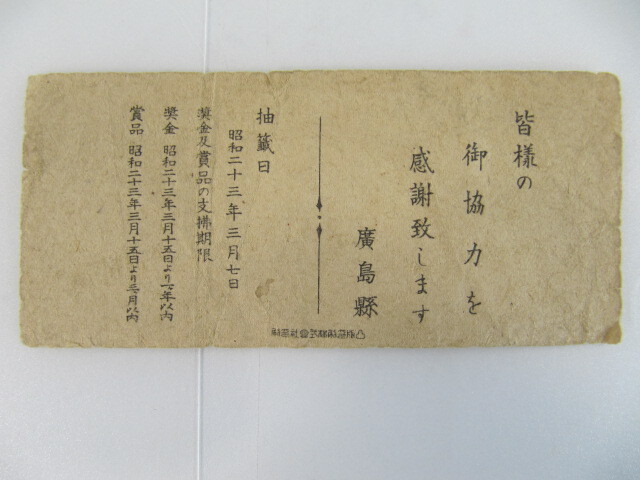 皆様の
御協力を
感謝致します
廣島縣
抽籤日
昭和二十三年三月七日
奬金及賞品の支拂期限
奬金 昭和二十三年三月十五日より一ケ年以内
賞品 昭和二十三年三月十五日より三ケ月以内